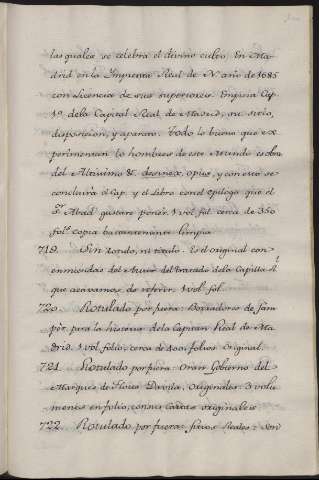 las quales se celebra el divino culto. En Ma-
drid en la Imprenta Real de N. año de 1685
con Licencia de sus superiores. Empieza Cap.
1º dela Capital Real de Madrid, su sitio,
disposicion, y aparato. Todo lo bueno que ex
perimentan los hombres de este Mundo es obra
del Altisimo &. desinex. opus, y con esto se
concluirá el Cap. y el Libro con el epilogo que el
Sr. Abad gustare poner. 1 vol. fol. cerca de 350
fols. copia bastantemente limpia.
719. Sin rotulo, ni titulo. Es el original con
enmiendas del Autor del tratado dela Capilla
que acavamos de referir. 1 vol. fol.
720. Rotulado por fuera: Borradores de Sam-
per. para la historia dela Capitan Real de Ma-
drid. 1 vol. folio, cerca de 400. folios. Original.
721. Rotulado por fuera: Gran Gobierno del
Marques de Flores Davila, originales. 3 volu-
menes en folio, con sus cartas originales.
722. Rotulado por fuera: sitios Reales: Son